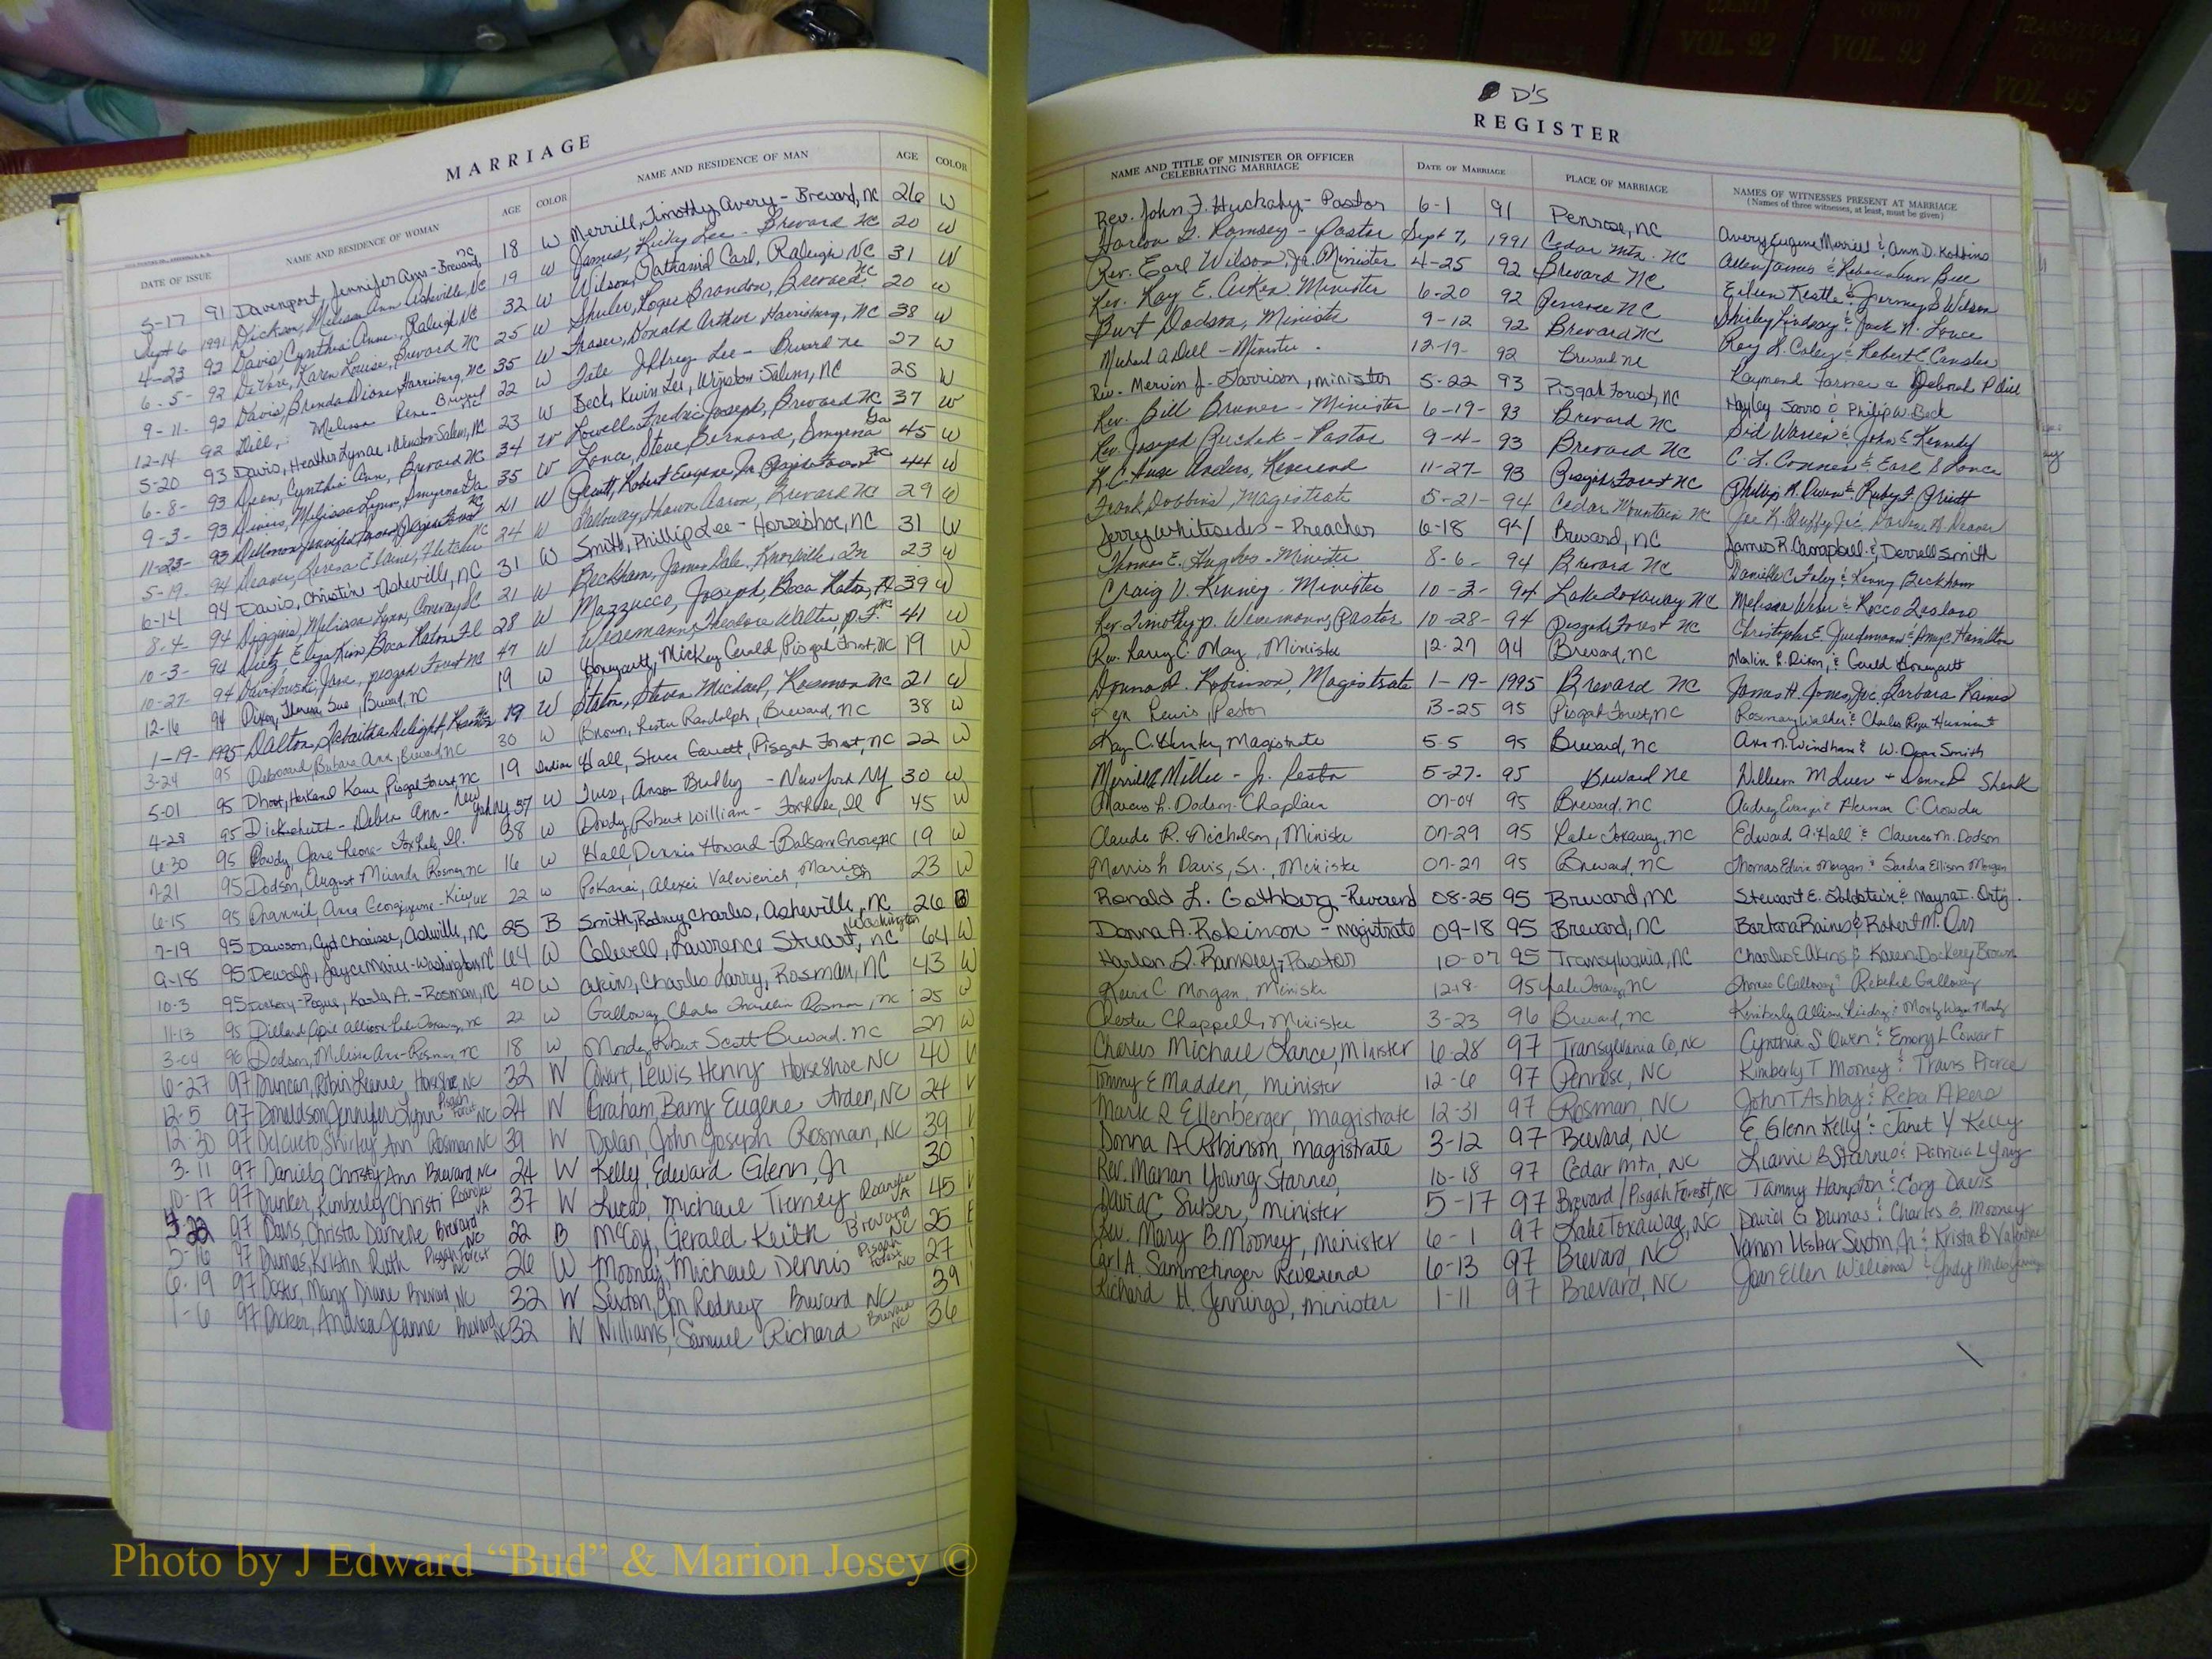 COUNTY VOL. 92
COUNTY VOL. 93
TRANSYLVANIA COUNTY VOL. 95
MARRIAGE
DATE OF ISSUE NAME AND RESIDENCE OF WOMAN AGE COLOR NAME AND RESIDENCE OF MAN AGE COLOR
5-17 91 Davenport, Jennifer Ann - Brevard, NC 18 W Merrill, Timothy Avery - Brevard, NC 26 W
Sept 6 1991 Dickson, Melissa Ann Asheville, NC 19 W James, Ricky Lee - Brevard NC 20 W
4-23 92 Davis, Cynthia Anne, Raleigh NC 32 W Wilson, Nathaniel Carl, Raleigh, NC 31 W
6-5- 92 Karen Louise, Brevard NC 25 W Shuler, Roger Brandon, Brevard NC 20 W
9-11- 92 Davis, Brenda Diane Harrisburg, NC 35 W Fraser, Donald Arthur Harrisburg, NC 38 W
12-14 92 Dill, Melissa Rene - Brevard NC 22 W Tate Jeffrey Lee - Brevard NC 27 W
5-20 93 Davis, Heather Lynae, Winston-Salem, NC 23 W Beck, Kevin Lee, Winston Salem, NC 25 W
6-8- 93 Dean, Cynthia Ann, Brevard NC 34 W Lowell, Fredric Joseph, Brevard NC 37 W
9-3- 93 Melissa Lynn, Smyrna Ga 35 W Lance, Steve Bernard, Smyrna Ga 45 W
11-23- 93 Pisgah Forest NC 41 W Pruitt, Robert Eugene Jr Pisgah Forest NC 44 W
5-19- 94 Deaver, Teresa Elaine, Fletcher NC 24 W Galloway, Shawn Aaron, Brevard NC 29 W
6-14 94 Davis, Christin - Asheville, NC 31 W Smith, Phillip Lee - Horseshoe, NC 31 W
8-4- 94 Melissa Lynn, Conway SC 21 W Beckham, James Dale, Knoxville, Tn 23 W
10-3- 94 Dietz, Eliza Kim Boca Raton Fl 28 W Mazzucco, Joseph, Boca Raton, Fl 39 W
10-27- 94 Jane, Pisgah Forest NC 47 W Wisemann, Theodore Walter, P.F. NC 41 W
12-16 94 Dixon, Theresa Sue, Brevard, NC 19 W Honeycutt, Mickey Gerald, Pisgah Forest, NC 19 W
1-19- 1995 Dalton, Tabaitha Delight, Rosman NC 19 W Staton, Steven Michael, Rosman NC 21 W
3-24 95 Barbara Ann, Brevard, NC 30 W Brown, Lester Randolph, Brevard, NC 38 W
5-01 95 Dhoot, Harkamal Kaur Pisgah Forest, NC 19 Indian Hall, Steven Garrett, Pisgah Forest, NC 22 W
4-28 95 Debra Ann - New York NY 37 W Ives, Anson Bradley - New York NY 30 W
6-30 95 Dowdy, Jane Leona - Fox Lake, Il. 38 W Dowdy, Robert William - Fox Lake, Il 45 W
7-21 95 Dodson, August Miranda Rosman, NC 16 W Hall, Dennis Howard - Balsam Grove, NC 19 W
6-15 95 Anna Georgiyevna - Kiev, UK 22 W Pokanai, Alexei Valerievich, Marion 23 W
7-19 95 Dawson, Chaisse, Asheville, NC 25 B Smith, Rodney Charles, Asheville, NC 26 B
9-18 95 Dewolf, Joyce Marie - Washington, NC 64 W Colwell, Lawrence Stuart, Washington NC 64 W
10-3 95 Dockery-Pogue, Karla A. - Rosman, NC 40 W Akins, Charles Larry, Rosman, NC 43 W
11-13 95 Dillard April Allison Lake Toxaway, NC 22 W Galloway Charles Franklin Rosman, NC 25 W
3-04 96 Dodson, Melissa Ann - Rosman, NC 18 W Moody, Robert Scott Brevard, NC 27 W
6-27 97 Duncan, Robin Leanne, Horseshoe, NC 32 W Cowart, Lewis Henry Horseshoe NC 40
12-5 97 Donaldson, Jennifer Lynn Pisgah Forest NC 24 W Graham, Barry Eugene Arden, NC 24
12-30 97 Delcueto, Shirley Ann Rosman NC 39 W Dolan, John Joseph Rosman, NC 39
3-11 97 Daniels, Christy Ann Brevard, NC 24 W Kelly, Edward Glenn, Jr 30
10-17 97 Dunker, Kimberley Christi Roanoke VA 37 W Lucas, Michael Tierney Roanoke VA 45
22 97 Davis, Christa Danielle Brevard NC 22 B McCoy, Gerald Keith Brevard NC 25
5-16 97 Dumas, Kristin Ruth Pisgah Forest NC 26 W Mooney, Michael Dennis Pisgah Forest NC 27
6-19 97 Doster, Mary Diane Brevard, NC 32 W Sexton, Jon Rodney Brevard NC 39
1-6 97 Andrea Jeanne Brevard NC 32 W Williams, Samuel Richard Brevard NC 36
D'S
REGISTER
NAME AND TITLE OF MINISTER OR OFFICER CELEBRATING MARRIAGE DATE OF MARRIAGE PLACE OF MARRIAGE NAMES OF WITNESSES PRESENT AT MARRIAGE (Names of three witnesses, at least, must be given)
Rev. John F. Huckaby - Pastor 6-1 91 Penrose, NC Avery Eugene Merrill & Ann D. Robbins
Harlon G. Ramsey - Pastor Sept 7, 1991 Cedar Mtn. NC Allen James & Rebecca Ann Bell
Rev. Earl Wilson, Jr. Minister 4-25 92 Brevard NC Eileen Keatle & Jeremy S Wilson
Rev. Ray E. Aiken Minister 6-20 92 Penrose NC Shirley Lindsay & Jack N. Lance
Burt Dodson, Minister 9-12 92 Brevard NC Roy L. & Robert C
Michael A Dell - Minister 12-19- 92 Brevard NC Raymond Farmer & Deborah P Dill
Rev. Mervin J. Garrison, minister 5-22 93 Pisgah Forest, NC Hayley Sorro & Philip W. Beck
Rev. Bill Bruner - Minister 6-19- 93 Brevard NC Sid Warren & John E Kennedy
Rev. Joseph - Pastor 9-4- 93 Brevard NC C. L. Conner & Earl S Lance
Anders, Reverend 11-27- 93 Pisgah Forest NC Phillip R. Owen & Ruby F. Pruitt
Frank Dobbins, Magistrate 5-21- 94 Cedar Mountain NC Joe K. Duffy, Jr & Darlene
Jerry Whitesides - Preacher 6-18 94 Brevard, NC James R. Campbell & Derrell Smith
Thomas E. Hughes - Minister 8-6- 94 Brevard NC Danielle C. Foley & Kenny Beckham
Craig V. Kinney - Minister 10-3- 94 Lake Toxaway NC Melissa & Rocco
Rev. Timothy P. Pastor 10-28- 94 Pisgah Forest NC Christopher E. & Amy C. Hamilton
Rev. Larry C. May, Minister 12-27 94 Brevard, NC Marlin R. Dixon, & Gerald Honeycutt
Donna A. Robinson, Magistrate 1-19-1995 Brevard NC James H. Jones, Jr & Barbara Raines
Ken Lewis, Pastor 3-25 95 Pisgah Forest, NC Rosemary Walker & Charles Roger
Kay C. Magistrate 5-5 95 Brevard, NC Ann N. Windham & W. Dean Smith
Merrill Miller - Jr. Pastor 5-27- 95 Brevard NC William M + Donna Shenk
Marcus L. Dodson - Chaplain 07-04 95 Brevard, NC Audrey & Herman C Crowder
Claude R. Nicholson, Minister 07-29 95 Lake Toxaway, NC Edward A. Hall & Clarence M. Dodson
Morris L Davis, Sr., Minister 07-27 95 Brevard, NC Thomas Edwin Morgan & Sandra Ellison Morgan
Ronald L. Gothberg - Reverend 08-25 95 Brevard, NC Stewart E. Goldstein & Mayra I. Ortiz.
Donna A. Robinson - Magistrate 09-18 95 Brevard, NC Barbara Raines & Robert M. Orr
Harlon G. Ramsey, Pastor 10-07 95 Transylvania, NC Charles E Akins & Karen Dockery Brown
C. Morgan, Minister 12-18- 95 Lake Toxaway, NC Thomas C Galloway & Rebekah Galloway
Chester Chappell, Minister 3-23 96 Brevard, NC Kimberly Allison & Monty Wayne Moody
Charles Michael Lance, Minister 6-28 97 Transylvania Co, NC Cynthia S Owen & Emory L Cowart
Tommy E Madden, Minister 12-6 97 Penrose, NC Kimberly T Mooney & Travis Pierce
Mark R Ellenberger, Magistrate 12-31 97 Rosman, NC John T Ashby & Reba Akers
Donna A Robinson, Magistrate 3-12 97 Brevard, NC E Glenn Kelly & Janet Y Kelly
Rev. Marian Young Starnes, 10-18 97 Cedar Mtn, NC B Starnes & Patricia L
David C Suber, minister 5-17 97 Brevard / Pisgah Forest, NC Tammy Hampton & Cory Davis
Rev. Mary B. Mooney, minister 6-1 97 Lake Toxaway, NC David G Dumas & Charles B. Mooney
Carl A. Sammetinger Reverend 6-13 97 Brevard, NC Vernon Usher Sexton, Jr & Krista B
Richard H. Jennings, minister 1-11 97 Brevard, NC Joan Ellen Williams & Judy
Photo by J Edward “Bud” & Marion Josey ©